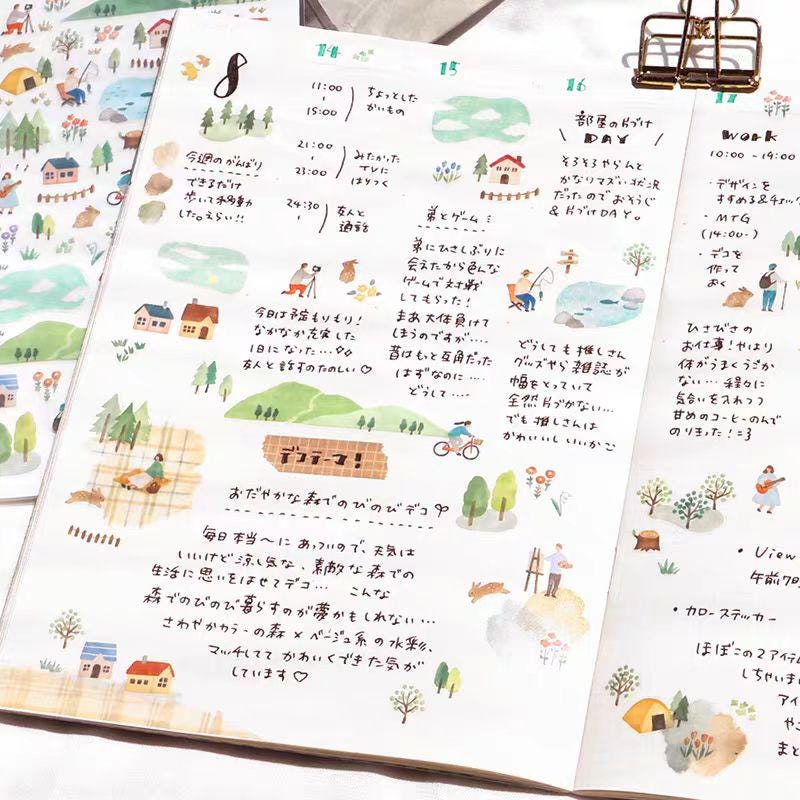 8
今週のがんばり
できるだけ
歩いて移動
した。えらい!!
14
11:00
-
15:00
ちょっとした
かいもの
21:00
-
23:00
みたかった
TVに
はりつく
24:30
-
友人と
通話
今日は予定もりもり!
なかなか充実した
1日になった…
友人と話すのたのしい♡
15
弟とゲーム
弟にひさしぶりに
会えたから色んな
ゲームで対戦
してもらった!
まあ大体負けて
しまうのですが…
昔はもっと互角だった
はずなのに…
どうして…
16
部屋の片づけ
\ DAY /
そろそろやらんと
かなりマズい状況
だったのでおそうじ
&片づけDAY。
どうしても推しさん
グッズやら雑誌が
幅をとっていて
全然片づかない…
でも推しさんは
かわいいしいいかご
17
WORK
10:00 -19:00
・デザインを
すすめる&チェック
・MTG
(14:00-)
・デコを
作って
おく
ひさびさの
お仕事!やはり
体がうまくうごか
ない…程々に
気合いを入れつつ
甘めのコーヒーのんで
のりきった!=3
デコテーマ!
おだやかな森でのびのびデコ
毎日本当〜にあっついので、天気は
いいけど涼し気な、素敵な森での
生活に思いをはせてデコ… こんな
森でのびのび暮らすのが夢かもしれない…
さわやかカラーの森×ベージュ系の水彩、
マッチしてて かわいくできた気が
しています♡
・View
午前7時
・カローステッカー
ほぼこの2アイテム
しちゃいま
アイ
やこ
まと